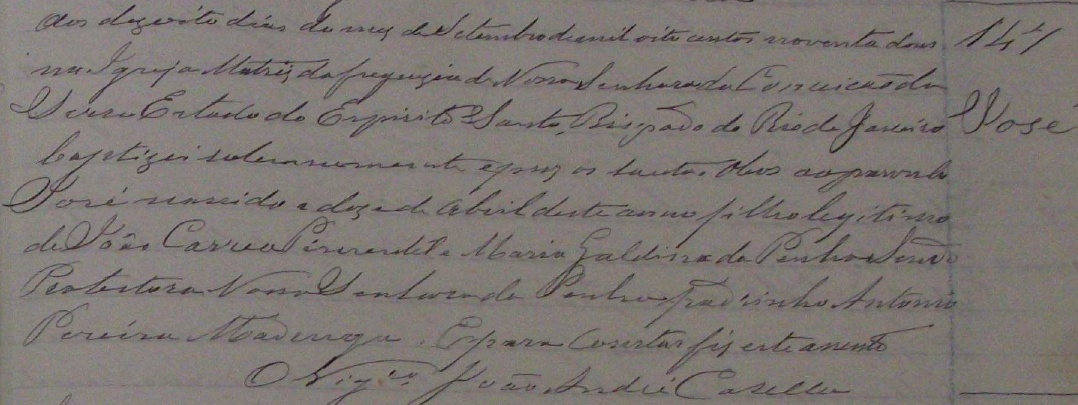 Aos dezoito dias do mez de Setembro de mil oito centos noventa dous
na Igreja Matriz da freguezia de Nossa Senhora da Conceicão da
Serra Estado do Espirito Santo, Bispado do Rio de Janeiro
baptizei solemnemente e puz os Santos Oleos ao parvulo
José nascido a doze de Abril deste anno filho legitimo
de João Correa e Maria Galdina da Penha Sendo
Protectora Nossa Senhora da Penha e padrinho Antonio
Pereira Madruga. E para constar fiz este assento
O Vigro João André Casella
141
José